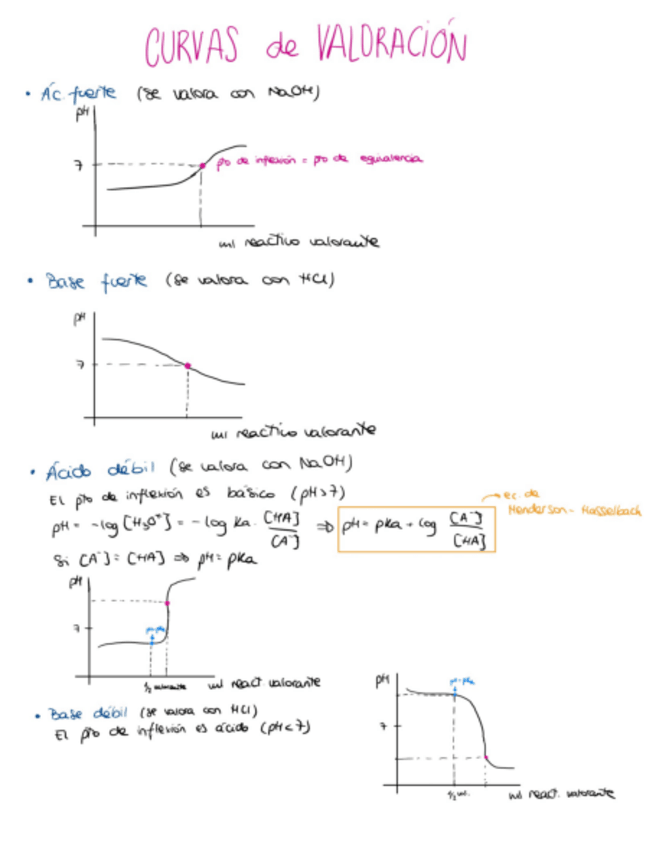 CURVAS de VALORACIÓN
• Ác. fuerte (se valora con NaOH)
pH
7
pto de inflexión = pto de equivalencia
ml reactivo valorante
• Base fuerte (se valora con HCl)
pH
7
ml reactivo valorante
• Ácido débil (se valora con NaOH)
El pto de inflexión es básico (pH>7)
pH = -log [H₃O⁺] = -log Ka · [HA]/[A⁻] ⇒ pH = pKa + log [A⁻]/[HA]
→ ec. de
Henderson - Hasselbach
Si [A⁻] = [HA] ⇒ pH = pKa
pH
7
pH=pKa
1/2
ml react valorante
• Base débil (se valora con HCl)
El pto de inflexión es ácido (pH<7)
pH
pH=pKa
7
1/2 vol.
ml react. valorante